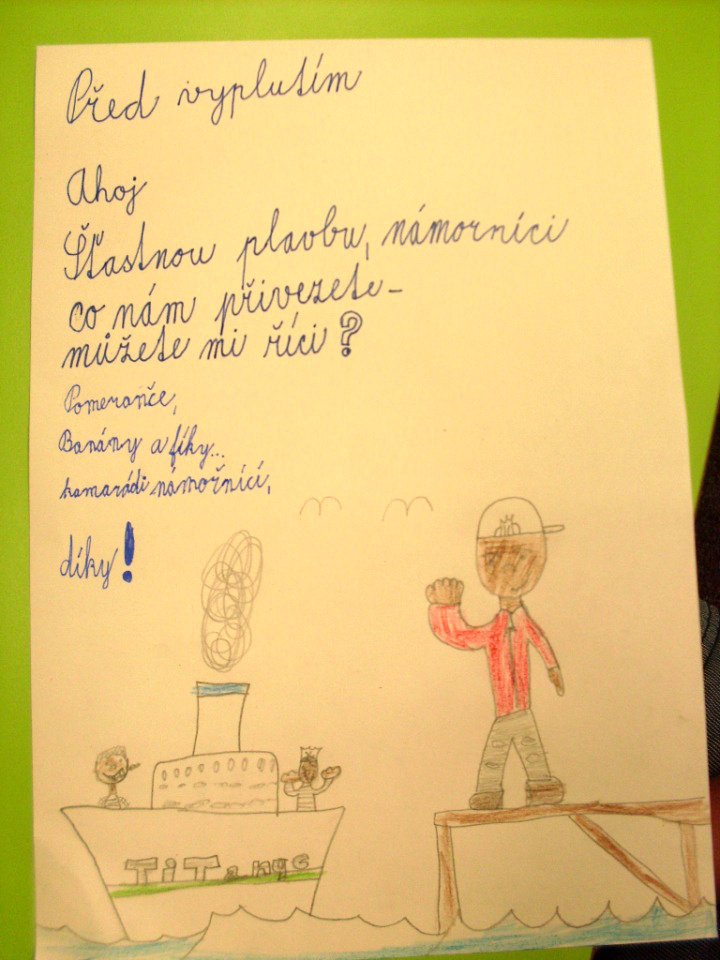 Před vyplutím
Ahoj
Šťastnou plavbu, námorníci
co nám přivezete-
můžete mi říci?
Pomeranče,
Banány a fíky...
kamarádi námořníci,
díky!
TiTanyc